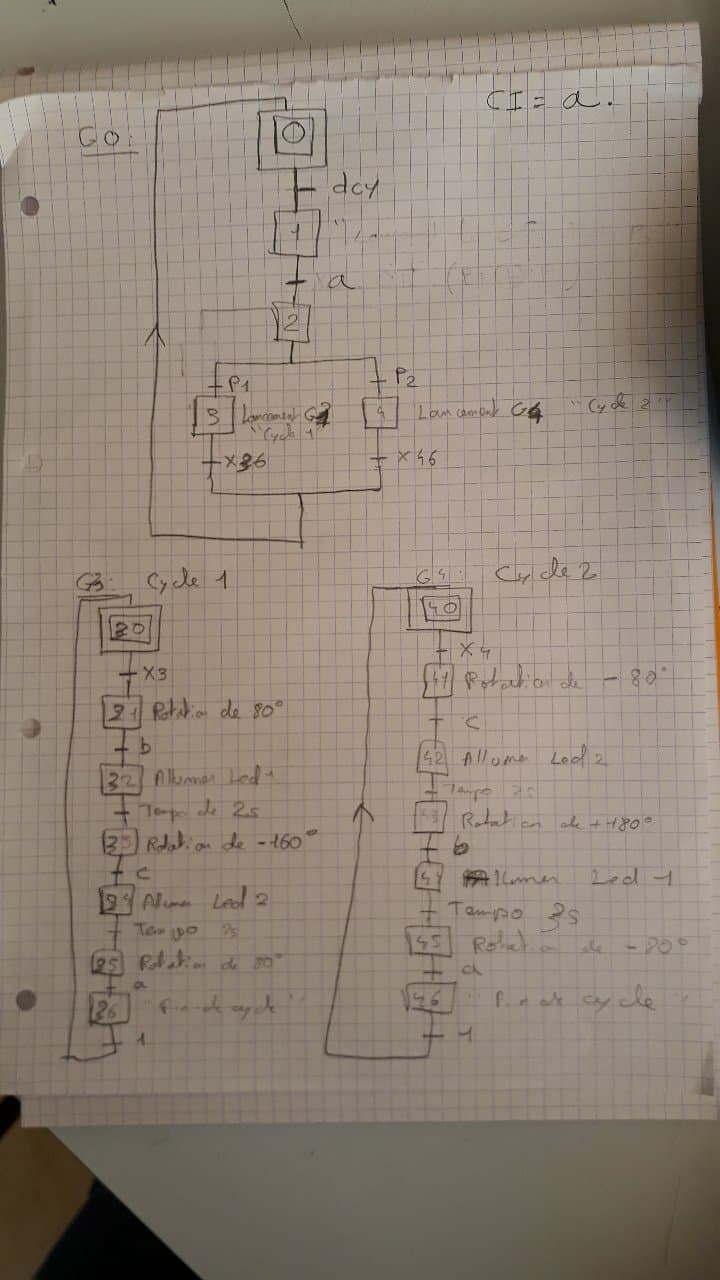 CI = a.
G0:
0
dcy
1
a
2
P1
P2
3 Lancement G3 "Cycle 1"
4 Lancement G4 "Cycle 2"
X36
X46
G3: Cycle 1
30
X3
31 Rotation de 80°
b
32 Allumer Led 1
Tempo de 2s
33 Rotation de -160°
c
34 Allumer Led 2
Tempo 2s
35 Rotation de 80°
a
36 "Fin de cycle"
1
G4: Cycle 2
40
X4
41 Rotation de - 80°
c
42 Allumer Led 2
Tempo
43 Rotation de +180°
b
44 Allumer Led 1
Tempo 3s
45 Rotation de
a
46 "Fin de cycle"
1